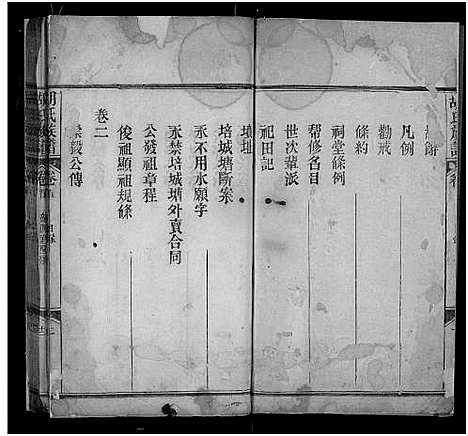 胡氏族譜
凡例
勸戒
條約
祠堂條例
幫修名目
世次輩派
祀田記
墳址
培城塘斷案
永不用水願字
永禁培城塘外賣合同
公發祖章程
俊祖顯祖規條
卷二
毅公傳
胡氏族譜